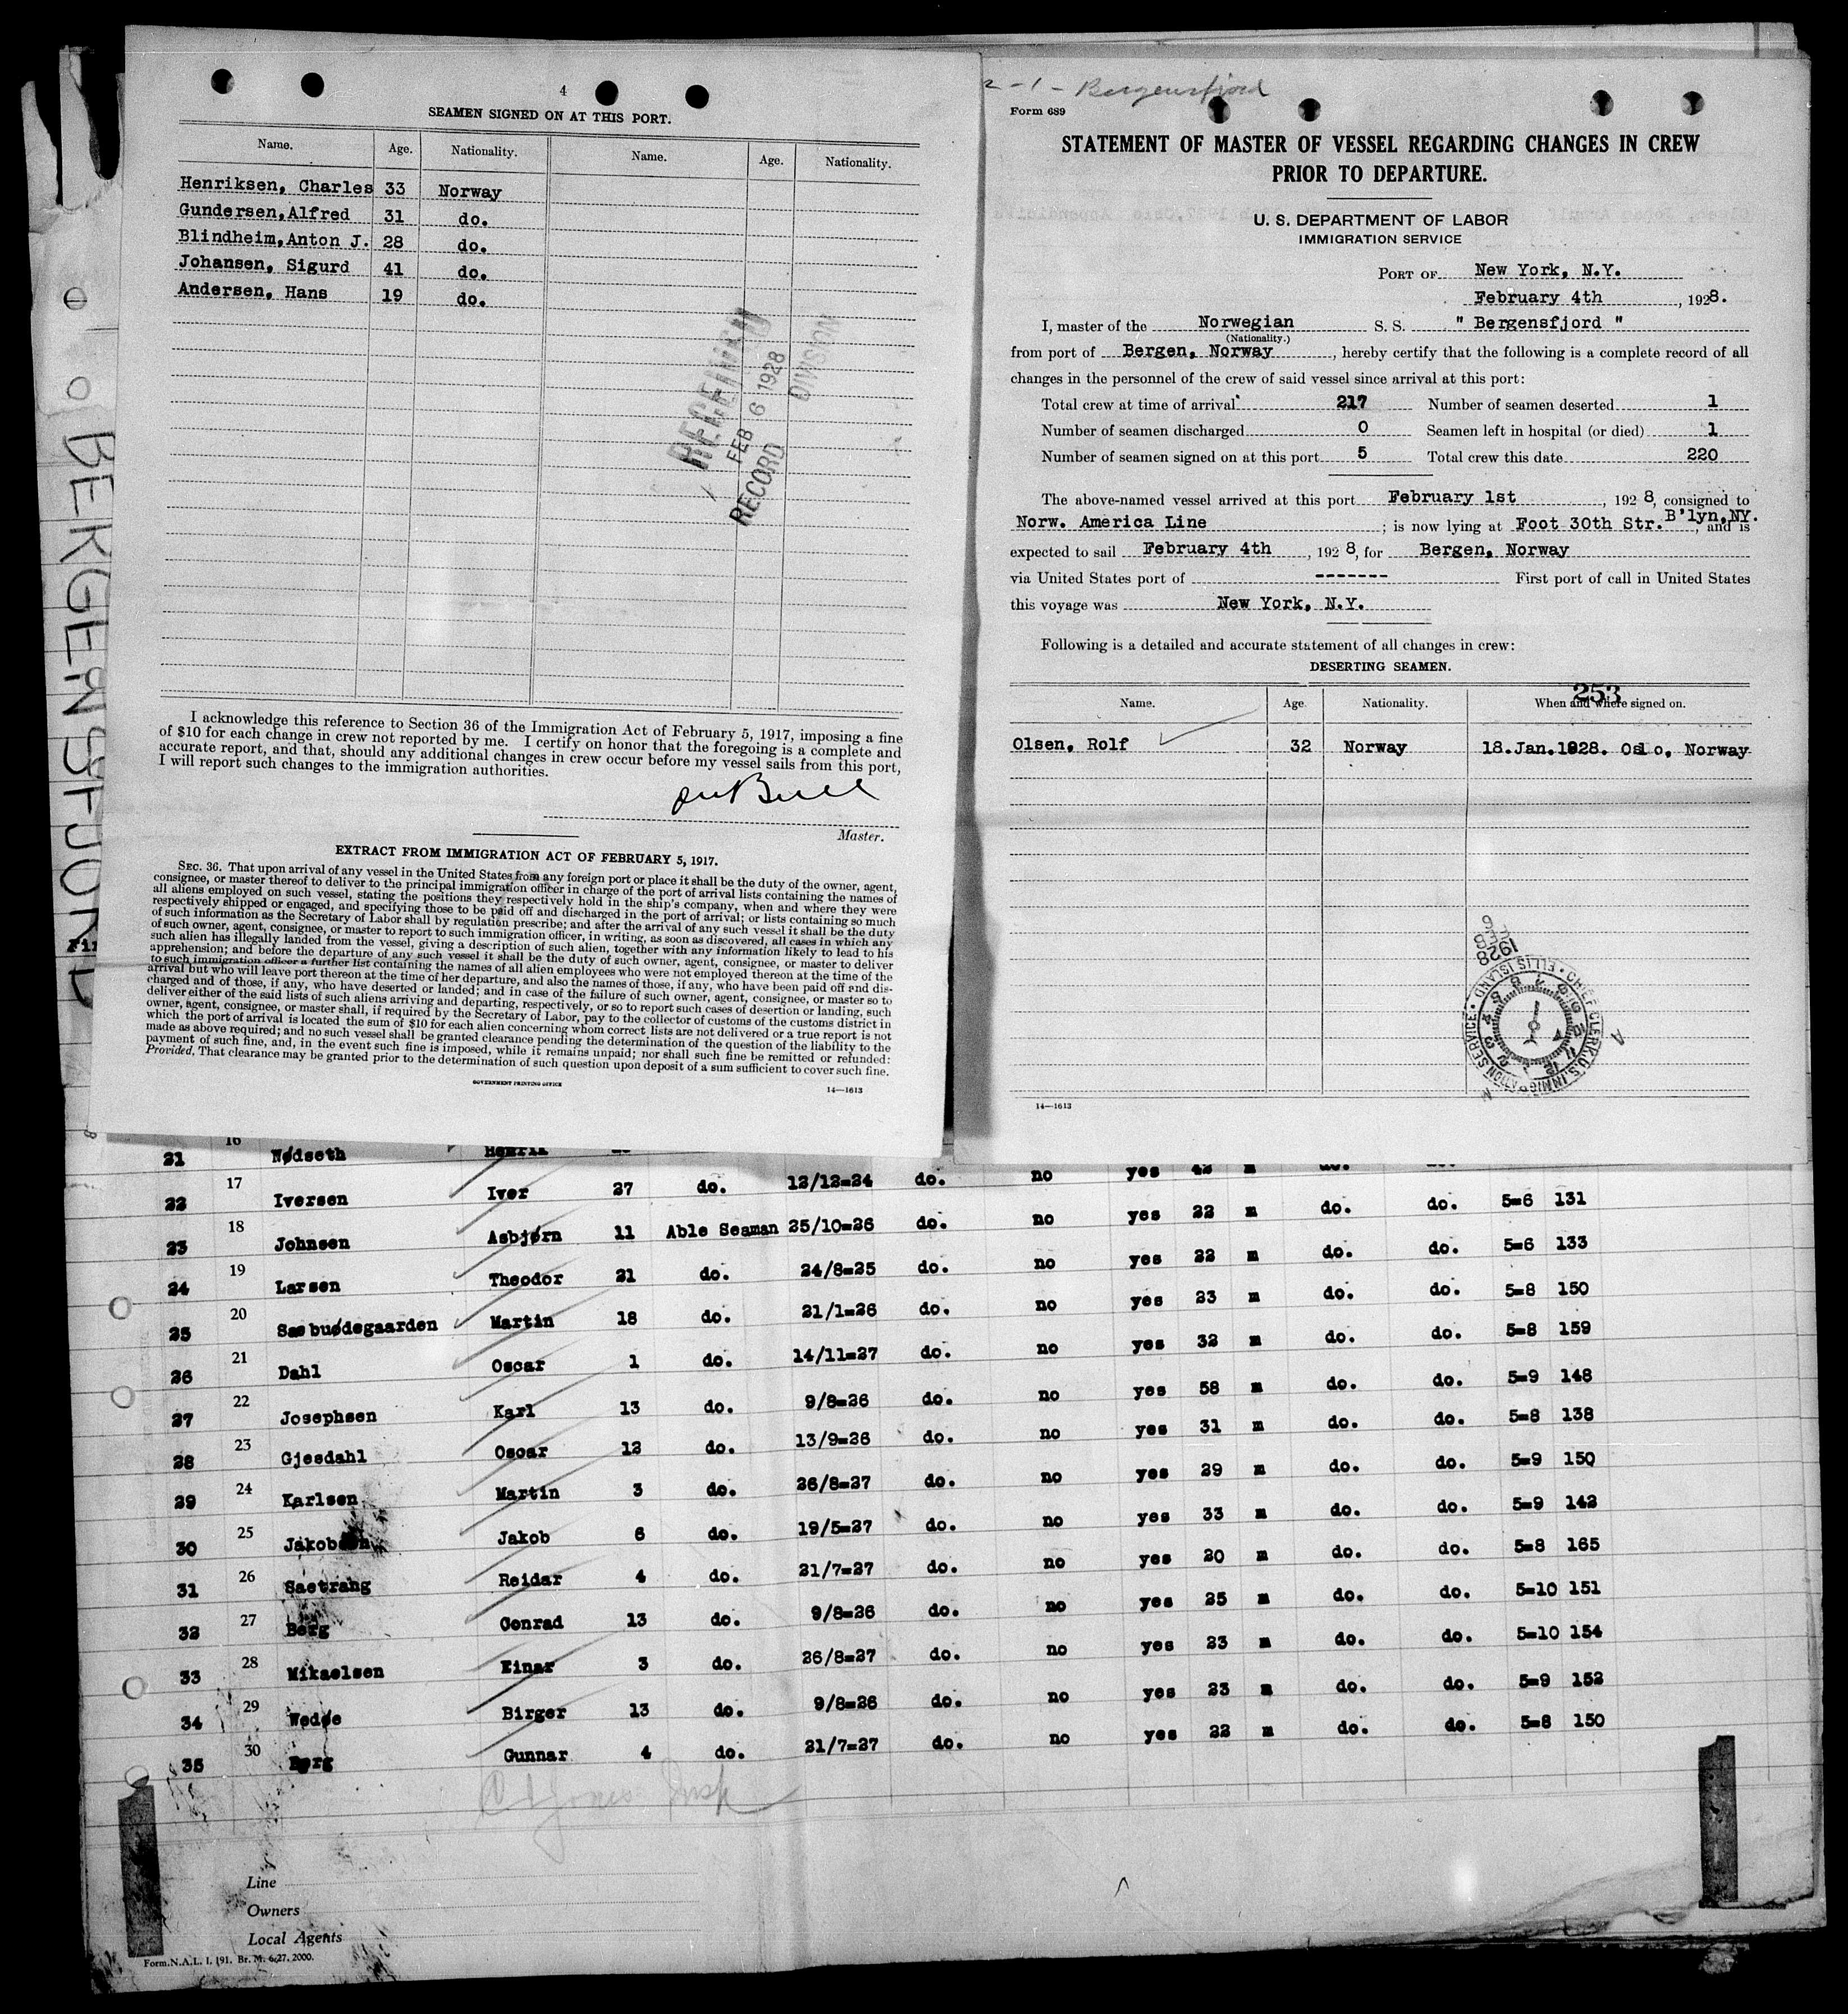 4
SEAMEN SIGNED ON AT THIS PORT.
Name. Age. Nationality. Name. Age. Nationality.
Henriksen, Charles 33 Norway
Gundersen,Alfred 31 do.
Blindheim,Anton J. 28 do.
Johansen, Sigurd 41 do.
Andersen, Hans 19 do.
RECEIVED
FEB 6 1928
RECORD DIVISION
I acknowledge this reference to Section 36 of the Immigration Act of February 5, 1917, imposing a fine
of $10 for each change in crew not reported by me. I certify on honor that the foregoing is a complete and
accurate report, and that, should any additional changes in crew occur before my vessel sails from this port,
I will report such changes to the immigration authorities.
Master.
EXTRACT FROM IMMIGRATION ACT OF FEBRUARY 5, 1917.
SEC. 36. That upon arrival of any vessel in the United States from any foreign port or place it shall be the duty of the owner, agent,
consignee, or master thereof to deliver to the principal immigration officer in charge of the port of arrival lists containing the names of
all aliens employed on such vessel, stating the positions they respectively hold in the ship's company, when and where they were
respectively shipped or engaged, and specifying those to be paid off and discharged in the port of arrival; or lists containing so much
of such information as the Secretary of Labor shall by regulation prescribe; and after the arrival of any such vessel it shall be the duty
of such owner, agent, consignee, or master to report to such immigration officer, in writing, as soon as discovered, all cases in which any
such alien has illegally landed from the vessel, giving a description of such alien, together with any information likely to lead to his
apprehension; and before the departure of any such vessel it shall be the duty of such owner, agent, consignee, or master to deliver
to such immigration officer a further list containing the names of all alien employees who were not employed thereon at the time of the
arrival but who will leave port thereon at the time of her departure, and also the names of those, if any, who have been paid off and dis-
charged and of those, if any, who have deserted or landed; and in case of the failure of such owner, agent, consignee, or master so to
deliver either of the said lists of such aliens arriving and departing, respectively, or so to report such cases of desertion or landing, such
owner, agent, consignee, or master shall, if required by the Secretary of Labor, pay to the collector of customs of the customs district in
which the port of arrival is located the sum of $10 for each alien concerning whom correct lists are not delivered or a true report is not
made as above required; and no such vessel shall be granted clearance pending the determination of the question of the liability to the
payment of such fine, and, in the event such fine is imposed, while it remains unpaid; nor shall such fine be remitted or refunded:
Provided, That clearance may be granted prior to the determination of such question upon deposit of a sum sufficient to cover such fine.
GOVERNMENT PRINTING OFFICE
14—1613
BERGENSFJORD
2-1- Bergensfjord
Form 689
STATEMENT OF MASTER OF VESSEL REGARDING CHANGES IN CREW
PRIOR TO DEPARTURE.
U. S. DEPARTMENT OF LABOR
IMMIGRATION SERVICE
PORT OF New York, N.Y.
February 4th, 1928.
I, master of the Norwegian S. S. " Bergensfjord "
(Nationality.)
from port of Bergen, Norway, hereby certify that the following is a complete record of all
changes in the personnel of the crew of said vessel since arrival at this port:
Total crew at time of arrival 217 Number of seamen deserted 1
Number of seamen discharged 0 Seamen left in hospital (or died) 1
Number of seamen signed on at this port 5 Total crew this date 220
The above-named vessel arrived at this port February 1st, 1928, consigned to
Norw. America Line; is now lying at Foot 30th Str. B'lyn,NY., and is
expected to sail February 4th, 1928, for Bergen, Norway
via United States port of ------- First port of call in United States
this voyage was New York, N.Y.
Following is a detailed and accurate statement of all changes in crew:
DESERTING SEAMEN.
253
Name. Age. Nationality. When and where signed on.
Olsen, Rolf 32 Norway 18.Jan.1928. Oslo, Norway
1928 FEB 6
CHIEF CLERK U.S. IMMIGRATION SERVICE • ELLIS ISLAND •
14—1613
21 16 Nødseth Henrik
no yes 42 m do. do.
22 17 Iversen Iver 27 do. 12/12=24 do. no yes 22 m do. do. 5=6 131
23 18 Johnsen Asbjørn 11 Able Seaman 25/10=26 do. no yes 22 m do. do. 5=6 133
24 19 Larsen Theodor 21 do. 24/8=25 do. no yes 23 m do. do. 5=8 150
25 20 Sæbuødegaarden Martin 18 do. 21/1=26 do. no yes 32 m do. do. 5=8 159
26 21 Dahl Oscar 1 do. 14/11=27 do. no yes 58 m do. do. 5=9 148
27 22 Josephsen Karl 13 do. 9/8=26 do. no yes 31 m do. do. 5=8 138
28 23 Gjesdahl Oscar 12 do. 13/9=26 do. no yes 29 m do. do. 5=9 150
29 24 Karlsen Martin 3 do. 26/8=27 do. no yes 33 m do. do. 5=9 142
30 25 Jakobsen Jakob 6 do. 19/5=27 do. no yes 20 m do. do. 5=8 165
31 26 Saetrang Reidar 4 do. 21/7=27 do. no yes 25 m do. do. 5=10 151
32 27 Berg Conrad 13 do. 9/8=26 do. no yes 23 m do. do. 5=10 154
33 28 Mikaelsen Einar 3 do. 26/8=27 do. no yes 23 m do. do. 5=9 152
34 29 Wedøe Birger 13 do. 9/8=26 do. no yes 22 m do. do. 5=8 150
35 30 Berg Gunnar 4 do. 21/7=27 do.
Line
Owners
Local Agents
Form.N.A.L. I. 191. Br. M. 6/27. 2000.